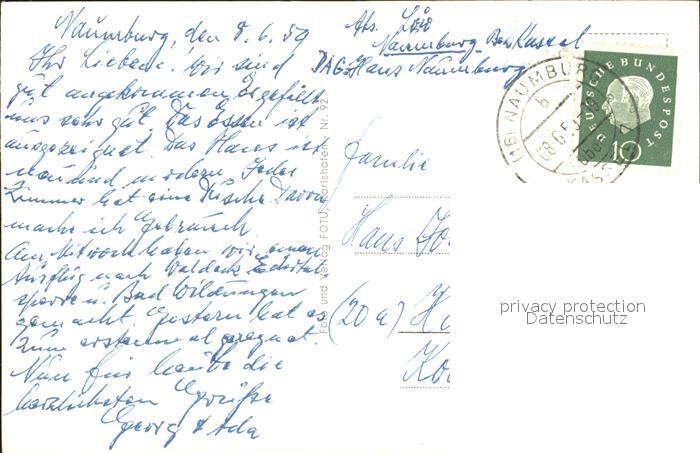 Naumburg, den 8.6.59
Ihr Lieben! Wir sind
gut angekommen. Es gefällt
uns sehr gut. Das Essen ist
ausgezeichnet. Das Haus ist
neu und modern. Jedes
Zimmer hat eine Dusche. Davon
mache ich Gebrauch.
Am Mittwoch haben wir einen
Ausflug nach Waldeck Edertal-
sperre u. Bad Wildungen
gemacht. Gestern hat es
zum erstenmal geregnet.
Nun für heute die
herzlichsten Grüße
Georg & Ada
Foto und Verlag FOTU, Karlshafen, Nr. 92
Abs.
Naumburg Bez. Kassel
DAG Haus Naumburg
(16) NAUMBURG
b
08.6.59
KASSEL
DEUTSCHE BUNDESPOST
10
Familie
Hans
(20a) H
privacy protection
Datenschutz